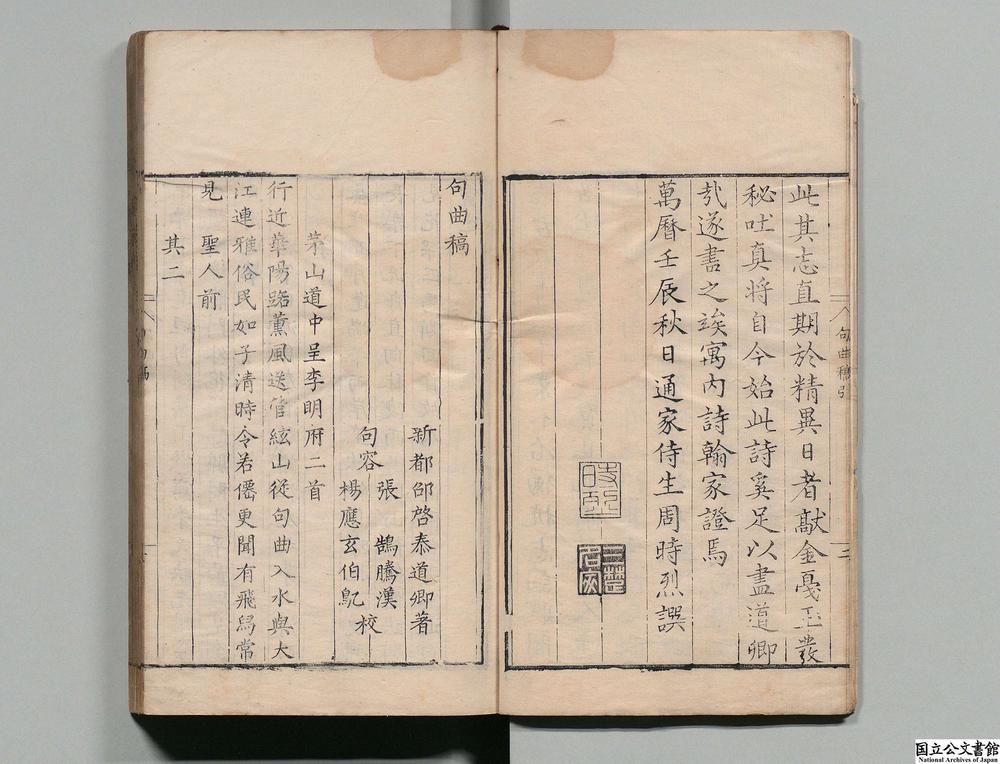 此其志直期於精異日者獻金戞玉發
秘吐真將自今始此詩奚足以盡道卿
㢤遂書之竢寓内詩翰家證焉
萬曆壬辰秋日通家侍生周時烈譔
句曲稿引
三
句曲稿
新都邵啓泰道卿著
句容張鵠騰漢
楊應玄伯鳦校
茅山道中呈李明府二首
行近華陽路薰風送管絃山從句曲入水與大
江連雅俗民如子清時令若僊更聞有飛舄常
見聖人前
其二
国立公文書館
National Archives of Japan